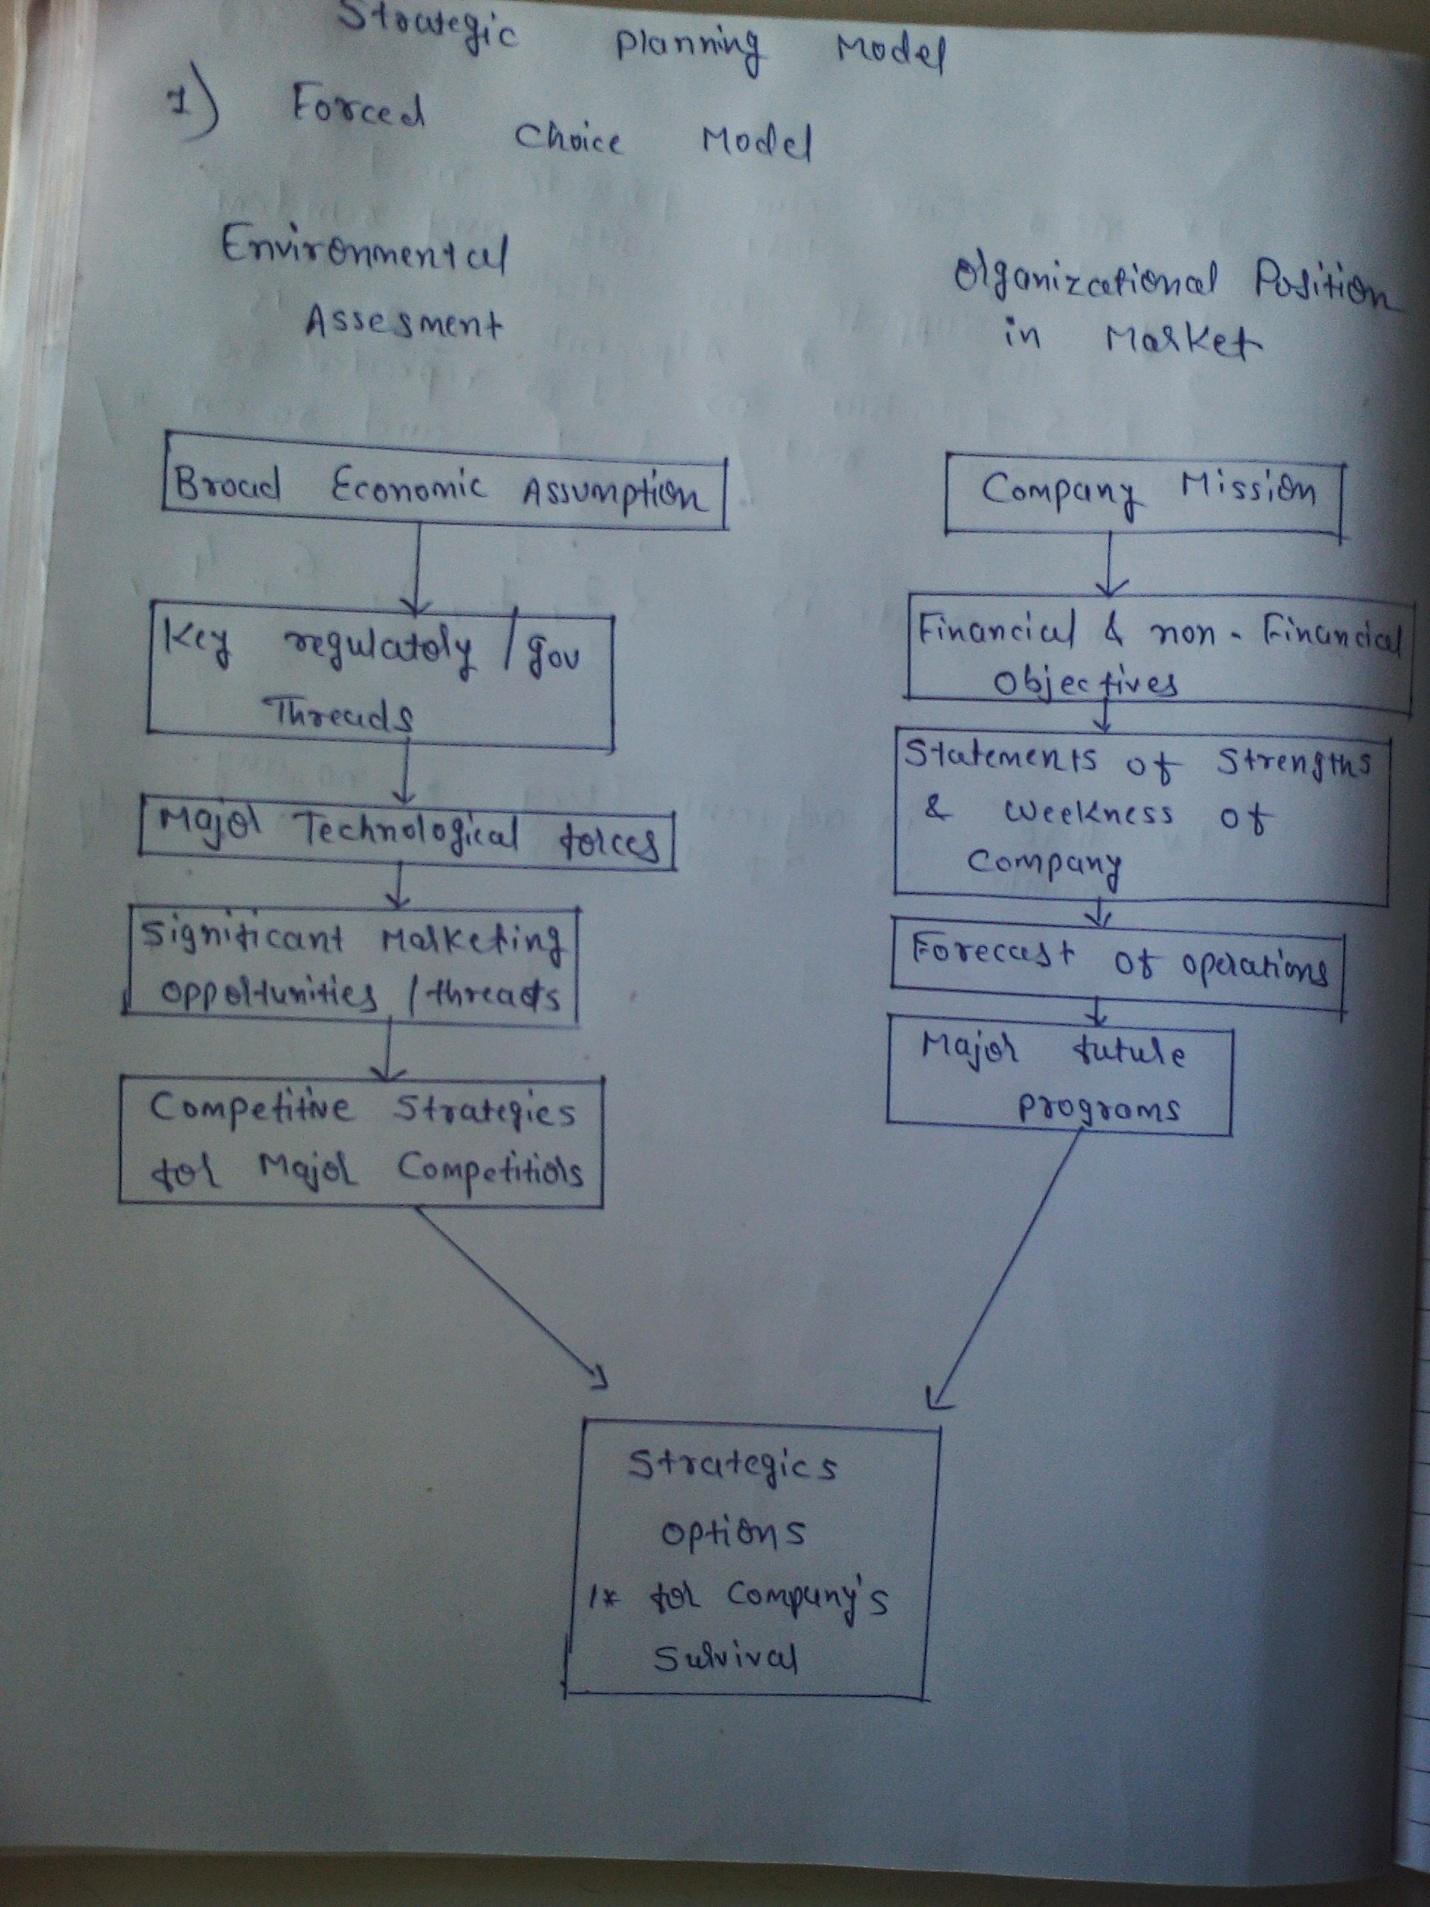 Strategic Planning Model
1) Forced Choice Model
Environmental
Assesment
Organizational Position
in Market
Broad Economic Assumption
Key regulatory / gov
Threads
Major Technological forces
Significant Marketing
opportunities / threats
Competitive Strategies
for Major Competitiors
Company Mission
Financial & non-Financial
Objectives
Statements of Strengths
& Weekness of
Company
Forecast of operations
Major future
programs
Strategics
options
1* for Company's
Survival